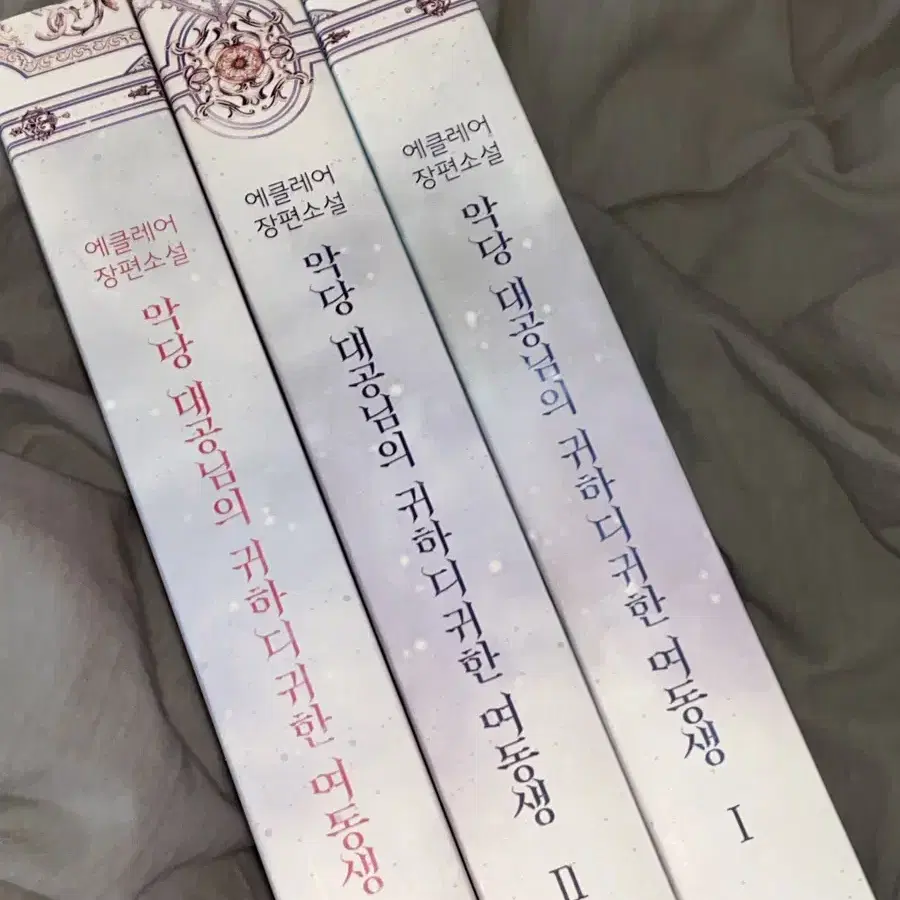 에클레어
장편소설
악당 대공님의 귀하디귀한 여동생
에클레어
장편소설
악당 대공님의 귀하디귀한 여동생
II
에클레어
장편소설
악당 대공님의 귀하디귀한 여동생
I